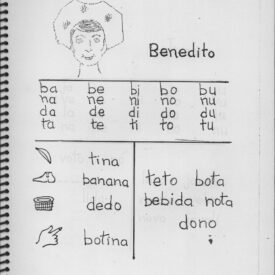 Benedito
ba be bi bo bu
na ne ni no nu
da de di do du
ta te ti to tu
tina
banana
dedo
botina
teto bota
bebida nota
dono